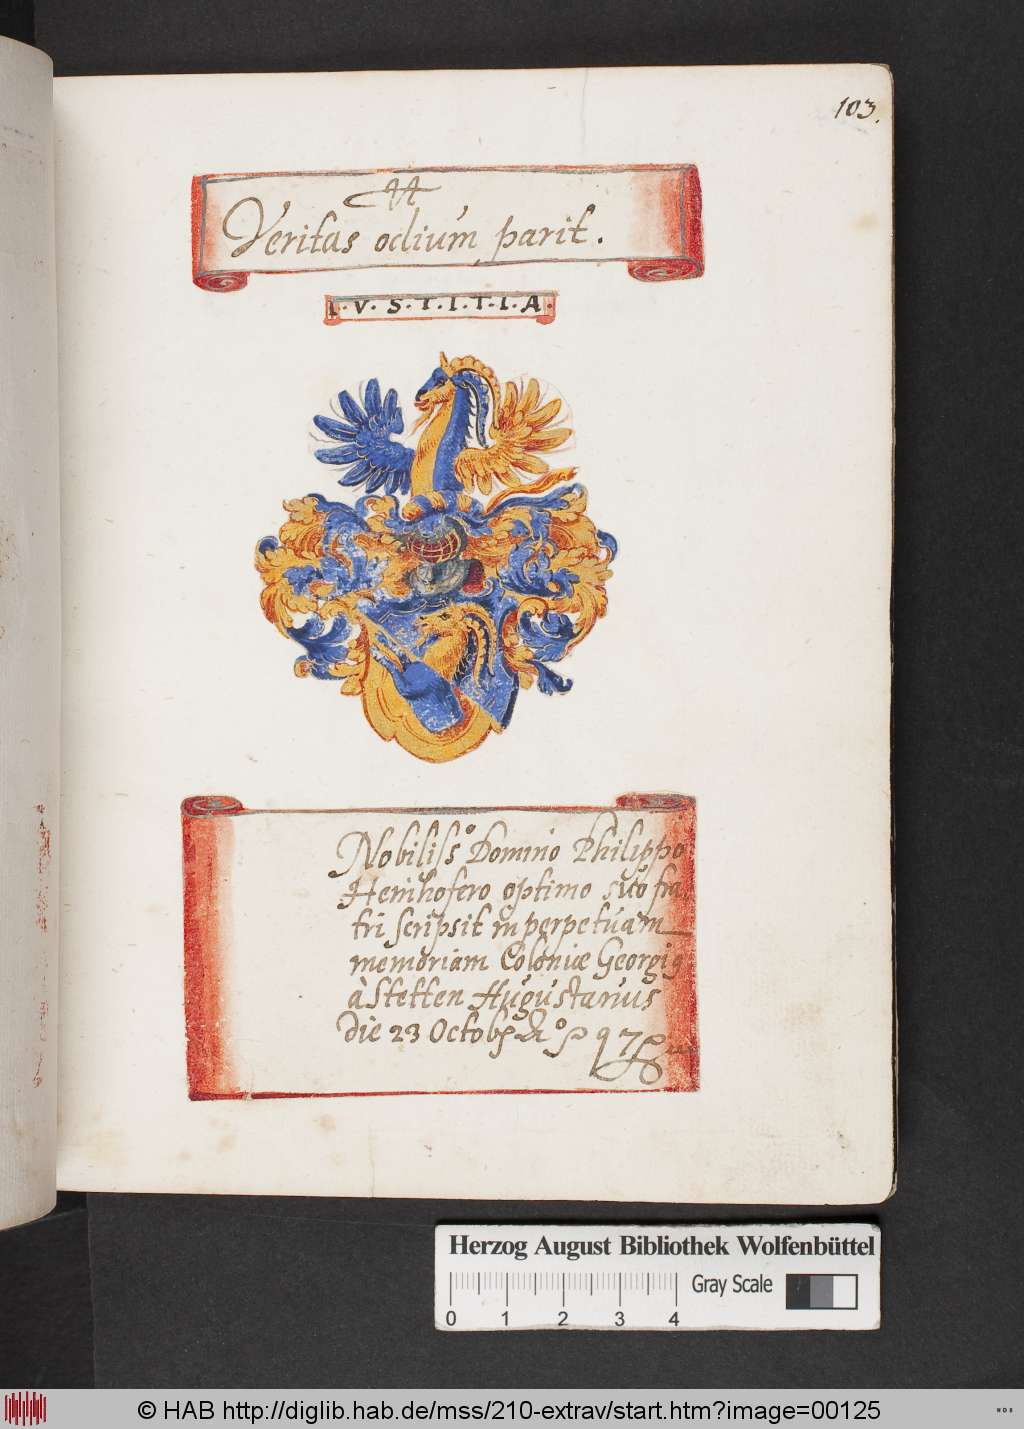 103.
Veritas odium parit.
I·V·S·T·I·T·I·A·
Nobiliſs° Domino Philippo
Heinhofero optimo suo fra
tri scripsit in perpetuam
memoriam Coloniæ Georgi9
à Stetten Augustanus
Die 23 Octob 97
Herzog August Bibliothek Wolfenbüttel
Gray Scale
0 1 2 3 4
© HAB http://diglib.hab.de/mss/210-extrav/start.htm?image=00125
HAB